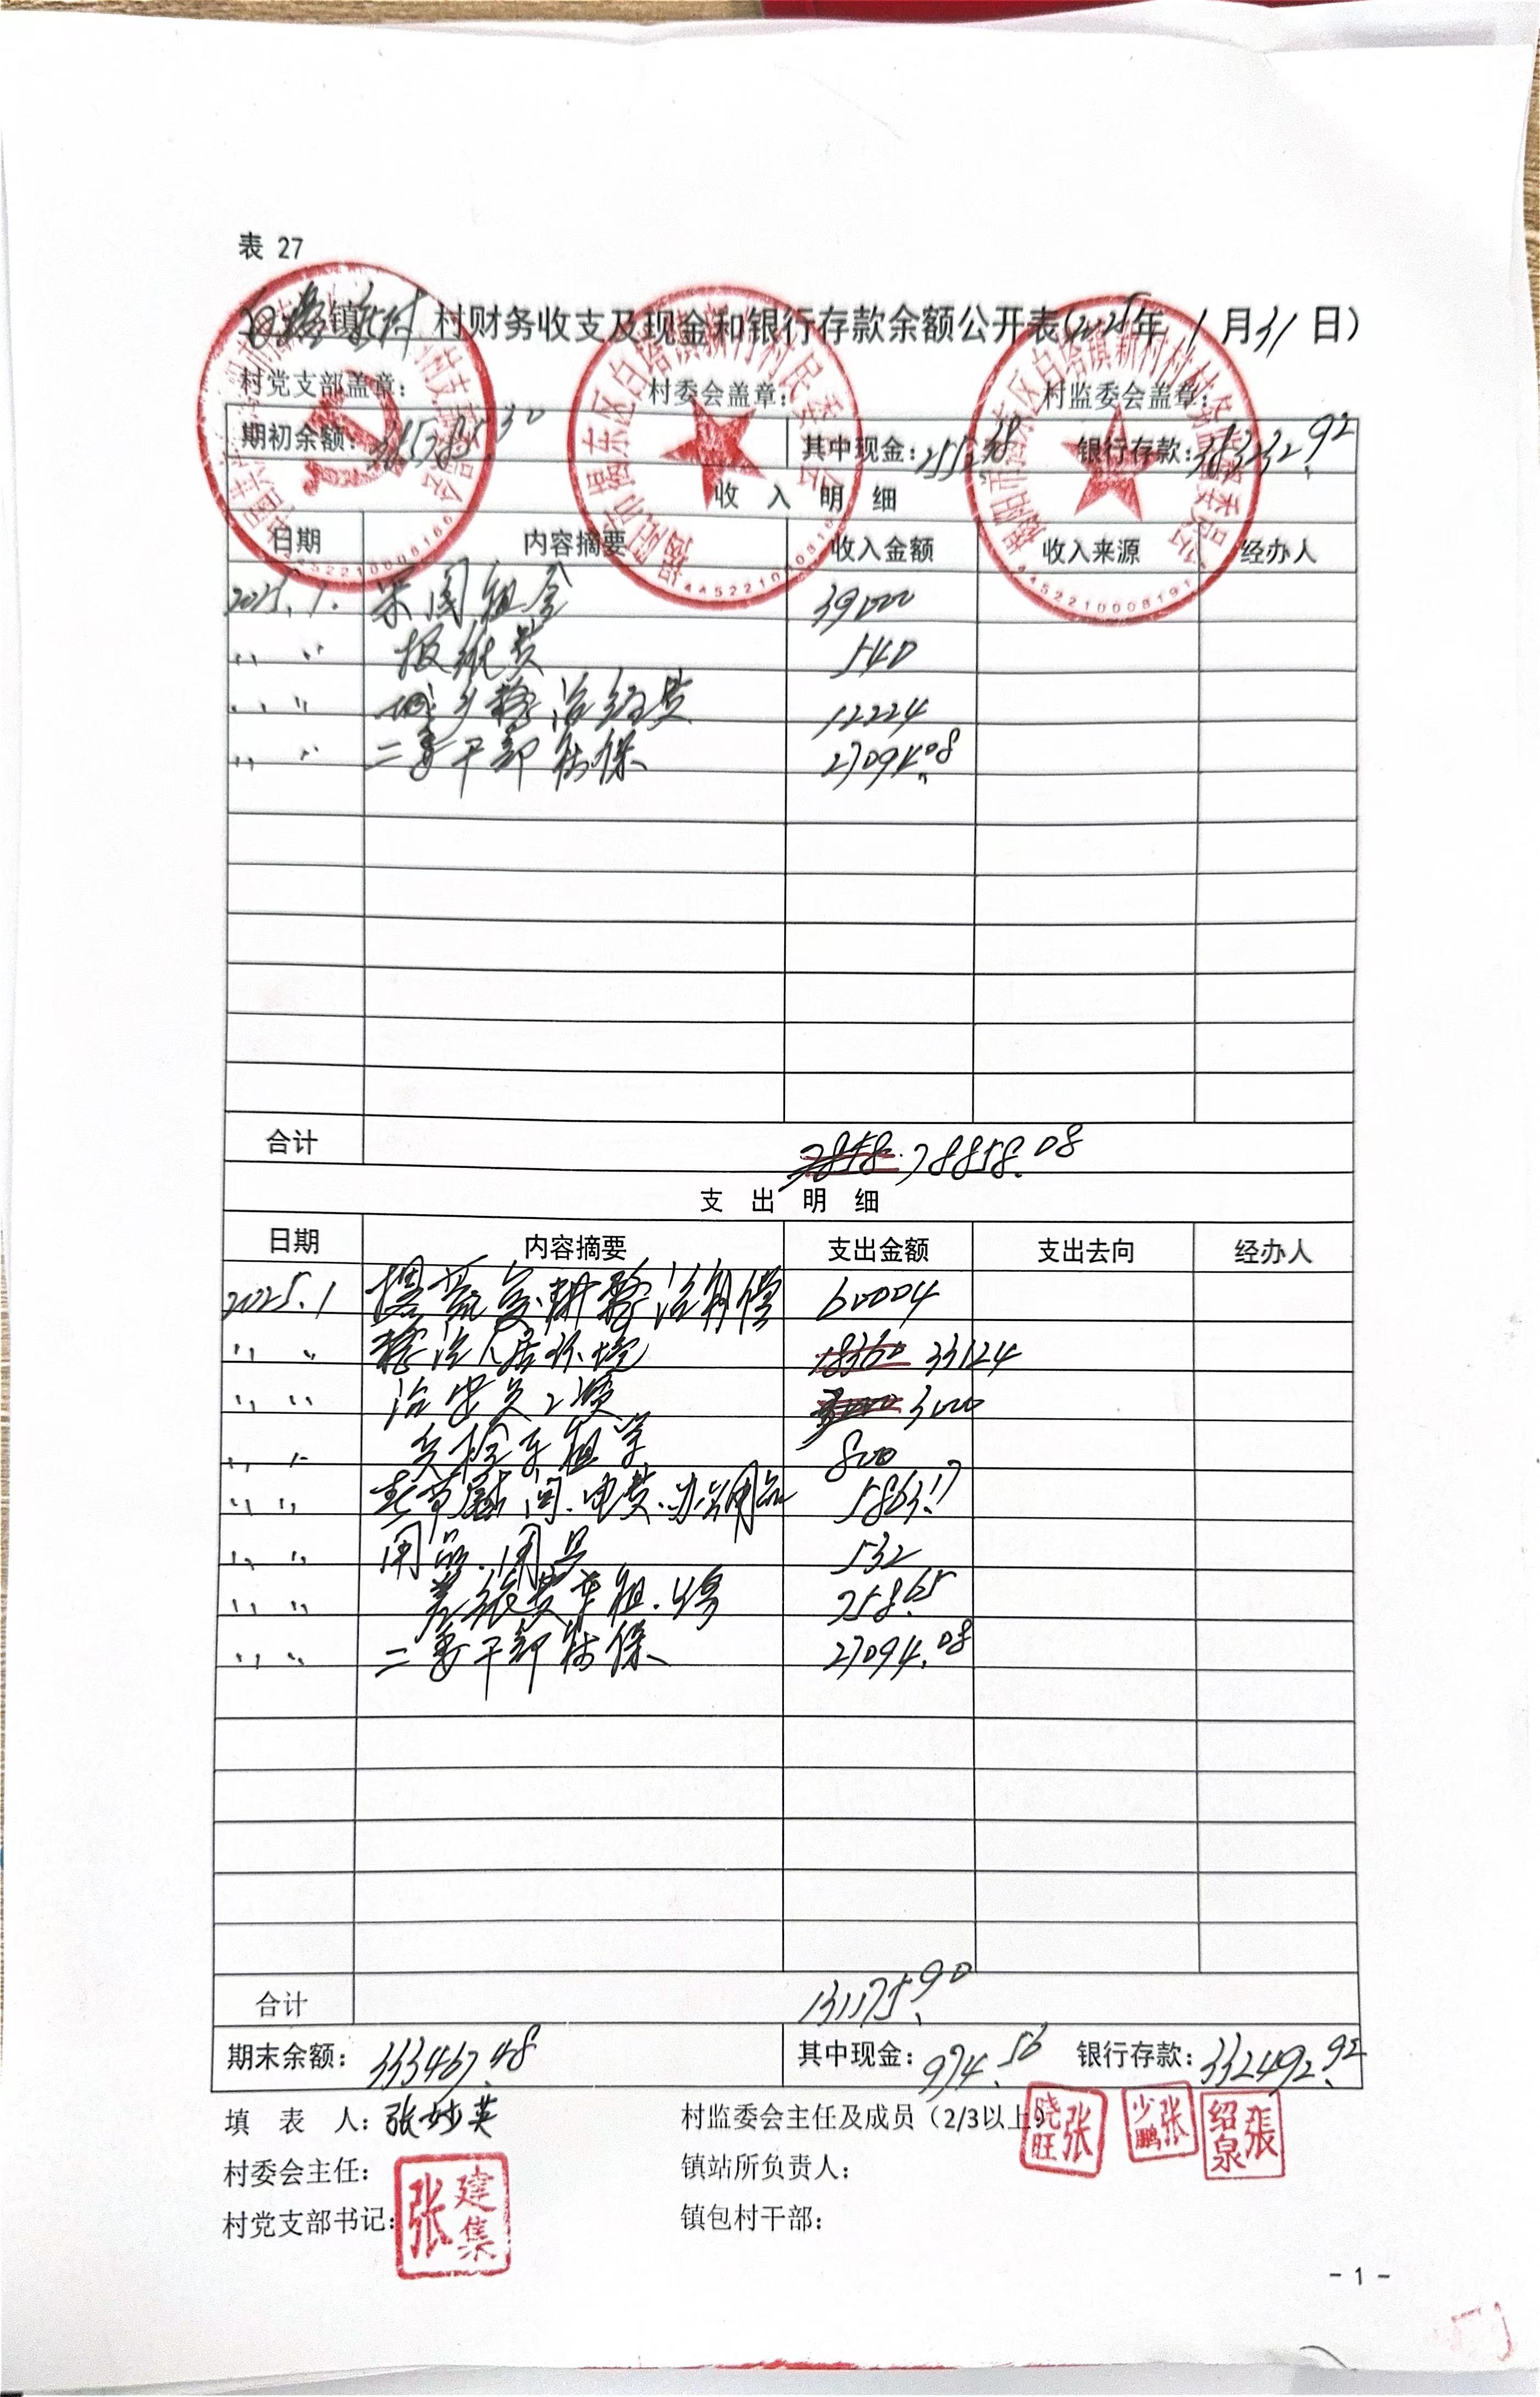 表 27
白塔镇新村 村财务收支及现金和银行存款余额公开表(2025年 1 月31 日)
村党支部盖章: 村委会盖章: 村监委会盖章:
期初余额: 385785.30 其中现金:2552.38 银行存款:383232.92
收 入 明 细
日期 内容摘要 收入金额 收入来源 经办人
2025.1. 果园租金 39000
〃 〃 报纸费 540
〃 〃 城乡整治经费 12224
〃 〃 二委干部社保 27094.08
合计 78858. 78858.08
支 出 明 细
日期 内容摘要 支出金额 支出去向 经办人
2025.1 撂荒复耕整治补偿 60004
〃 〃 整治人居环境 18360 33124
〃 〃 治安员工资 3000
〃 〃 车租 800
〃 〃 春节慰问.电费.办公用品 5863.17
〃 〃 用品.用具 532
〃 〃 差旅费车租. 758.65
〃 〃 二委干部社保 27094.08
合计 131175.90
期末余额: 333467.48 其中现金: 974.56 银行存款:332492.92
填 表 人: 张妙英 村监委会主任及成员(2/3以上) 张晓旺 张少鹏 張绍泉
村委会主任: 镇站所负责人:
村党支部书记: 张建集 镇包村干部:
- 1 -